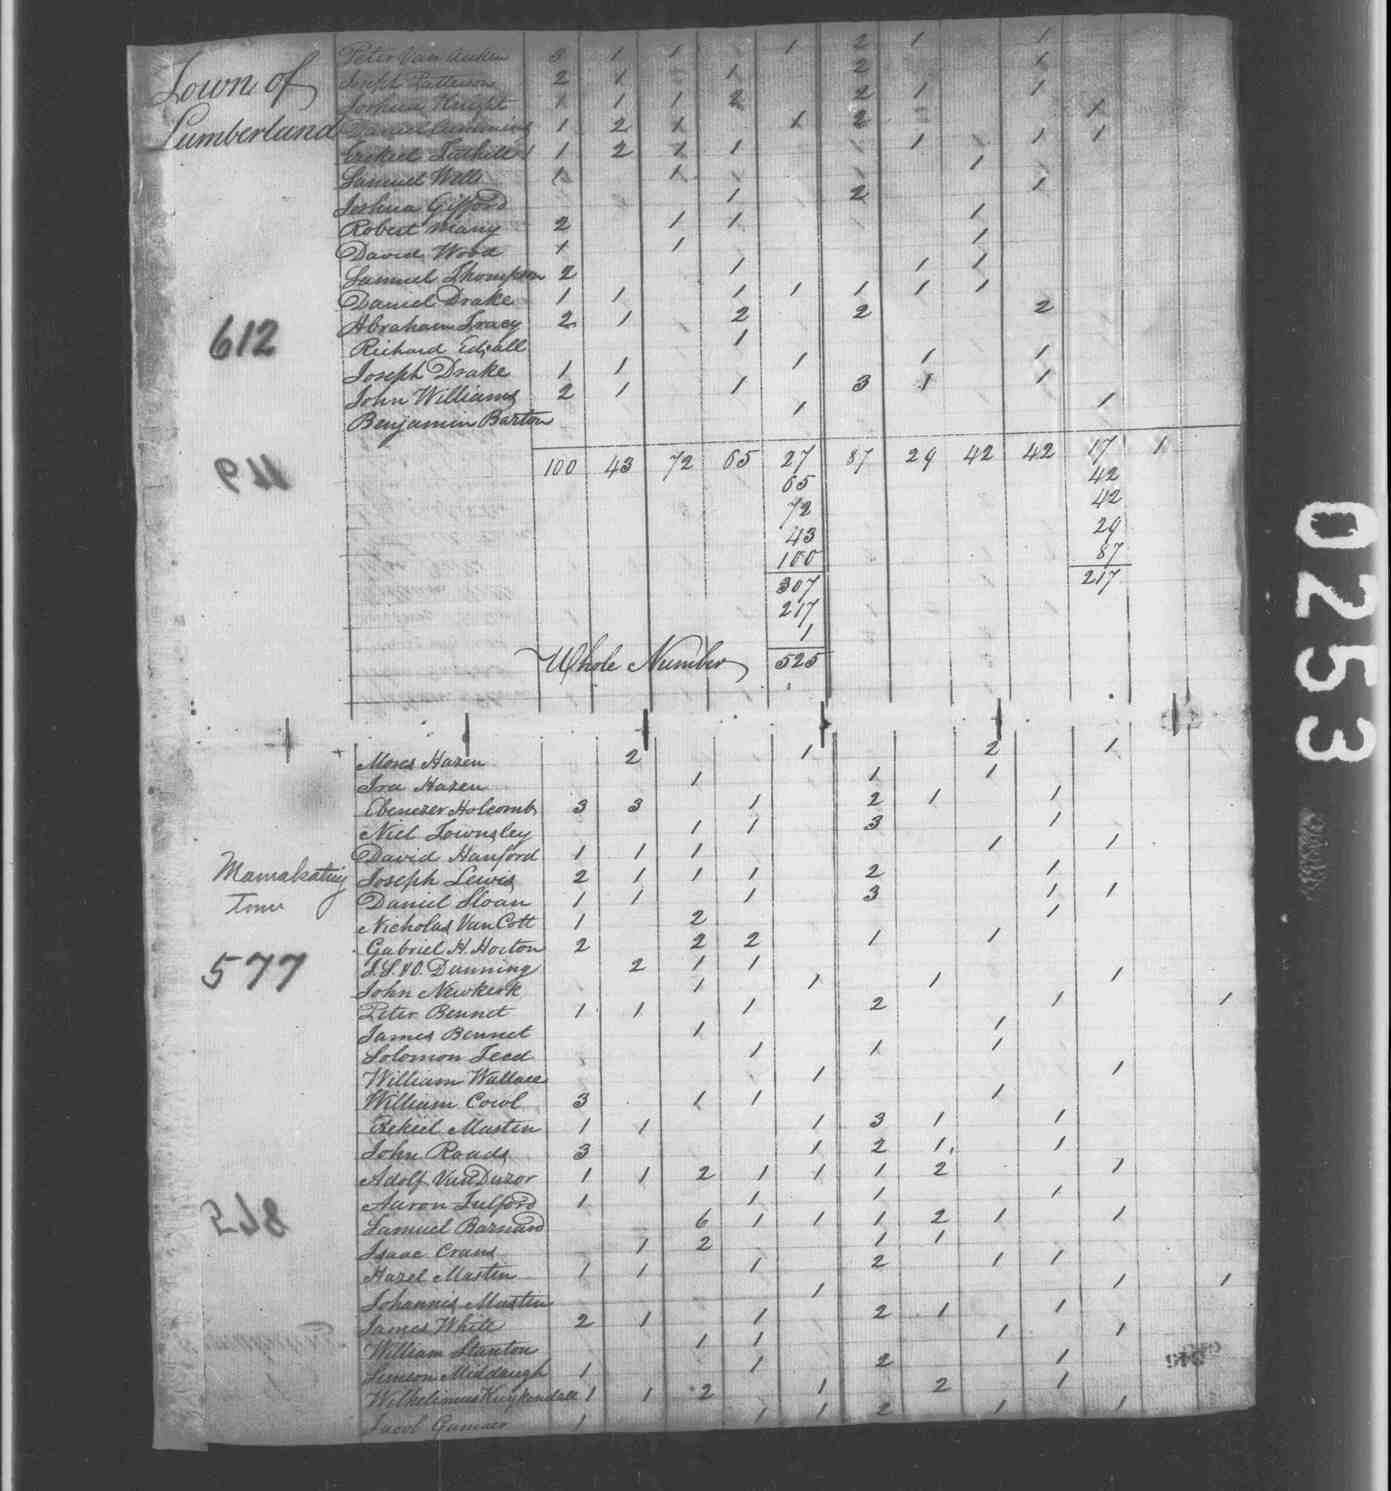 Town of
Lumberland
Peter Van Auken 3 1 1 1 2 1 1
Joseph Patterson 2 1 1 2 1
Joshua Knight 1 1 1 2 2 1 1
Daniel Cummins 1 2 1 1 2 1
Ezekiel Tuthill 1 2 1 1 1 1 1
Samuel Wells 1 1 1
Joshua Gifford 1 2 1
Robert Many 2 1 1 1
David Wood 1 1 1
Samuel Thompson 2 1 1 1
Daniel Drake 1 1 1 1 1 1 1
612
Abraham Tracy 2 1 2 2 2
Richard Edsall 1
Joseph Drake 1 1 1 1 1
John Williams 2 1 1 3 1 1
Benjamin Barton 1 1
100 43 72 65 27 87 29 42 42 17 1
65 42
72 42
43 29
100 87
307 217
217
1
Whole Number 525
Moses Hazen 2 1 2 1
Ira Hazen 1 1 1
Ebenezer Holcomb 3 3 1 2 1 1
Niel Townsley 1 1 3 1
David Hanford 1 1 1 1 1
Mamakating
Town
Joseph Lewis 2 1 1 1 2 1
Daniel Sloan 1 1 1 3 1 1
Nicholas Van Cott 1 2 1
Gabriel H. Horton 2 2 2 1 1
577
Dunning 2 1 1
John Newkerk 1 1 1 1
Peter Bennet 1 1 1 2 1 1
James Bennet 1 1
Solomon Teed 1 1 1
William Wallace 1 1
William Cowl 3 1 1 1
Ezekiel Masten 1 1 1 3 1 1
John Roads 3 1 2 1 1
Adolf Van Duzor 1 1 2 1 1 1 2 1
Aaron Fulford 1 1 1 1
Samuel Barnard 6 1 1 1 2 1 1
Isaac Crans 1 2 1 1
Hazel Masten 1 1 1 2 1 1
Johannis Masten 1 1 1
James White 2 1 1 2 1 1
William Stanton 1 1 1 1
Simeon Middaugh 1 1 2 1
Wilhelimus Kuykendall 1 1 2 1 2 1
Jacob Gumaer 1 1 1 2 1 1
0253